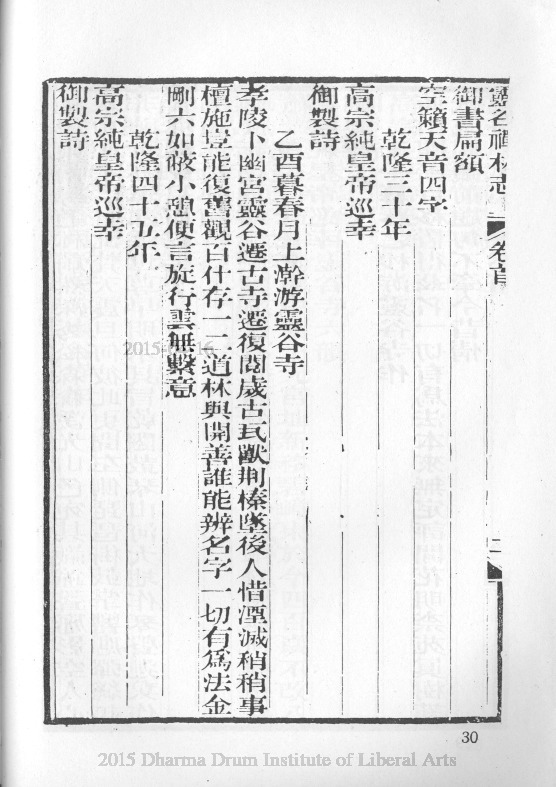 靈谷禪林志 卷首 二
御書扁額
空籟天音四字
乾隆三十年
高宗純皇帝巡幸
御製詩
乙酉暮春月上澣游靈谷寺
孝陵卜幽宮靈谷遷古寺遷復閱歲古瓦獸荆榛墜後人惜湮滅稍稍事
檀施豈能復舊觀百什存一二道林與開善誰能辨名字一切有爲法金
剛六如蔽小憩便言旋行雲無繫意
乾隆四十五年
高宗純皇帝巡幸
御製詩
30
2015 Dharma Drum Institute of Liberal Arts